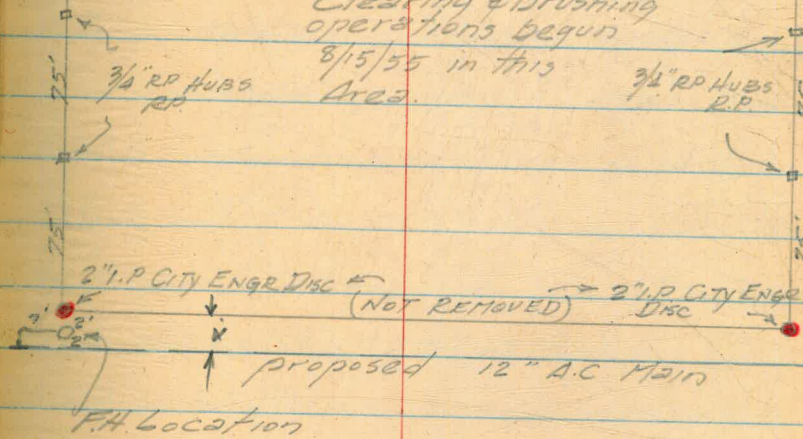 Clearing & brushing
operations begun
8/15/55 in this
Area.
75'
3/4" RP HUBS
RP.
3/4" RP HUBS
R.P.
75'
75'
2" I.P CITY ENGR DISC
(NOT REMOVED)
2" I.P CITY ENGR
DISC
2'
2'
proposed 12" A.C Main
F.H. Location